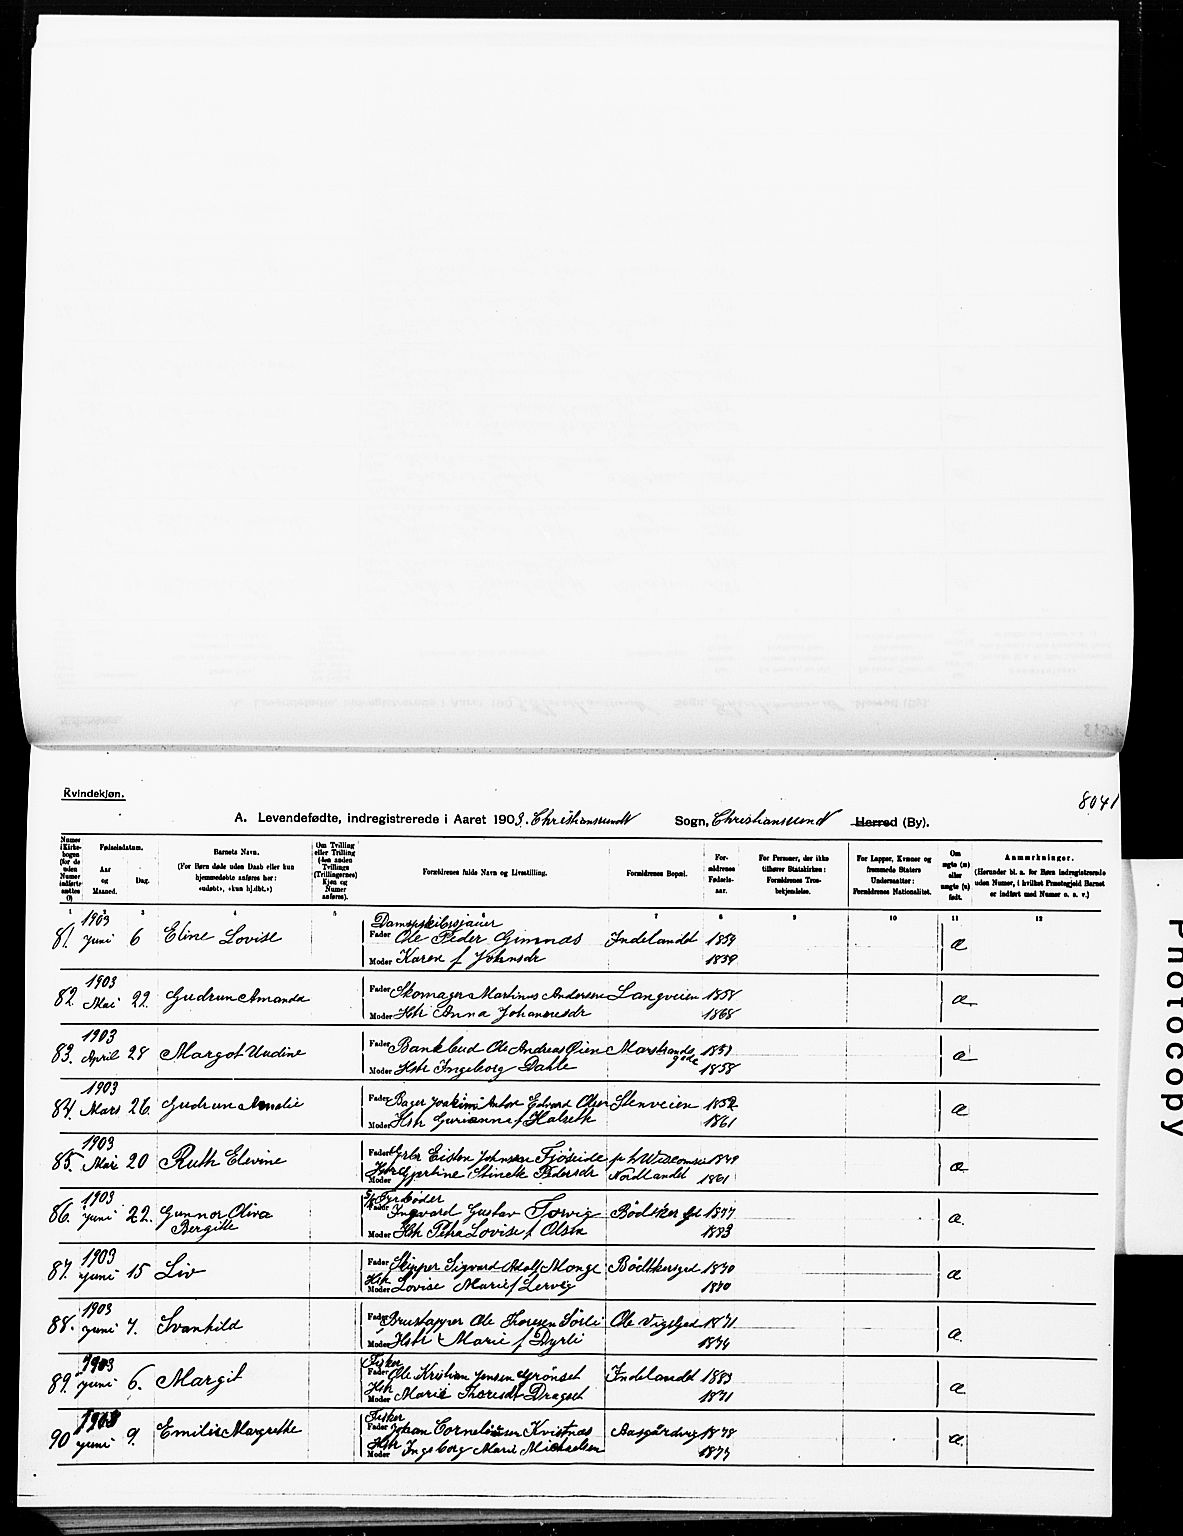 Kvindekjøn.
8041
A. Levendefødte, indregistrerede i Aaret 1903. Christianssund Sogn, Christianssund Herred (By).
Numer i Kirkebogen (for de uden Numer indførte sættes 0)
Fødselsdatum.
Aar og Maaned.
Dag.
Barnets Navn.
(For Børn døde uden Daab eller kun hjemmedøbte anføres her: «udøbt», «kun hjdbt.»)
Om Tvilling eller Trilling (den anden Tvillings (Trillingernes) Kjøn og Numer anføres).
Forældrenes fulde Navn og Livsstilling.
Forældrenes Bopæl.
Forældrenes Fødselsaar.
For Personer, der ikke tilhører Statskirken: Forældrenes Trosbekjendelse.
For Lapper, Kvæner og fremmede Staters Undersaatter: Forældrenes Nationalitet.
Om ægte (æ) eller uægte (u) født.
Anmærkninger.
(Herunder bl. a. for Børn indregistrerede uden Numer, i hvilket Præstegjeld Barnet er indført med Numer o. s. v.)
1 2 3 4 5 7 8 9 10 11 12
1903
Dampskibs
81. Juni 6 Eline Lovise Fader Ole Peder Gimnæs Indelandet 1859 æ
Moder Karen f Johnsdr 1859
1903
82. Mai 22. Gudrun Amanda Fader Skomager Martinus Andersen Langveien 1858 æ
Moder Hstr Anna Johannesdr 1868
1903
83. April 28 Margot Undine Fader Bankbud Ole Andreas Øien Marstrands gde 1851 æ
Moder Hstr Ingeborg Dahle 1858
1903
84. Mars 26. Gudrun Amalie Fader Bager Joakim Anton Edvard Olsen Stenveien 1852 æ
Moder Hstr Gurianna f Halseth 1861
1903
85. Mai 20 Ruth Elevine Fader Eisten Johnsen Fjøseide 1849 æ
Hstr Moder Gjertine Stinette Pedersdr Nordlandet 1861
1903
Fyrbøder
86. Juni 22. Gunnor Oliva Fader Ingvard Gustav Torvig Bødker gd 1877 æ
Bergitte Moder Hstr Petra Lovise f Olsen 1883
1903
87. Juni 15 Liv Fader Skipper Sigvard Adolf Monge Bødkkergd 1870 æ
Hstr Moder Lovise Marie f Lervig 1870
1903
88. Juni 7. Svanhild Fader Brustapper Ole Thoresen Sørli Ole Vigsgd 1871 æ
Moder Hstr Marie f Dyrli 1874
1903
Fisker
89. Juni 6. Margit Fader Ole Kristian Jensen Grønset Indelandet 1883 æ
Hstr Moder Marie Thoresdr Dragset 1871
1903
Fisker
90 Juni 9. Emilie Margrethe Fader Johan Corneliussen Kvistnæs Aasgårdvig 1878 æ
Hstr Moder Ingeborg Marie Michaelsen 1875
Photocopy